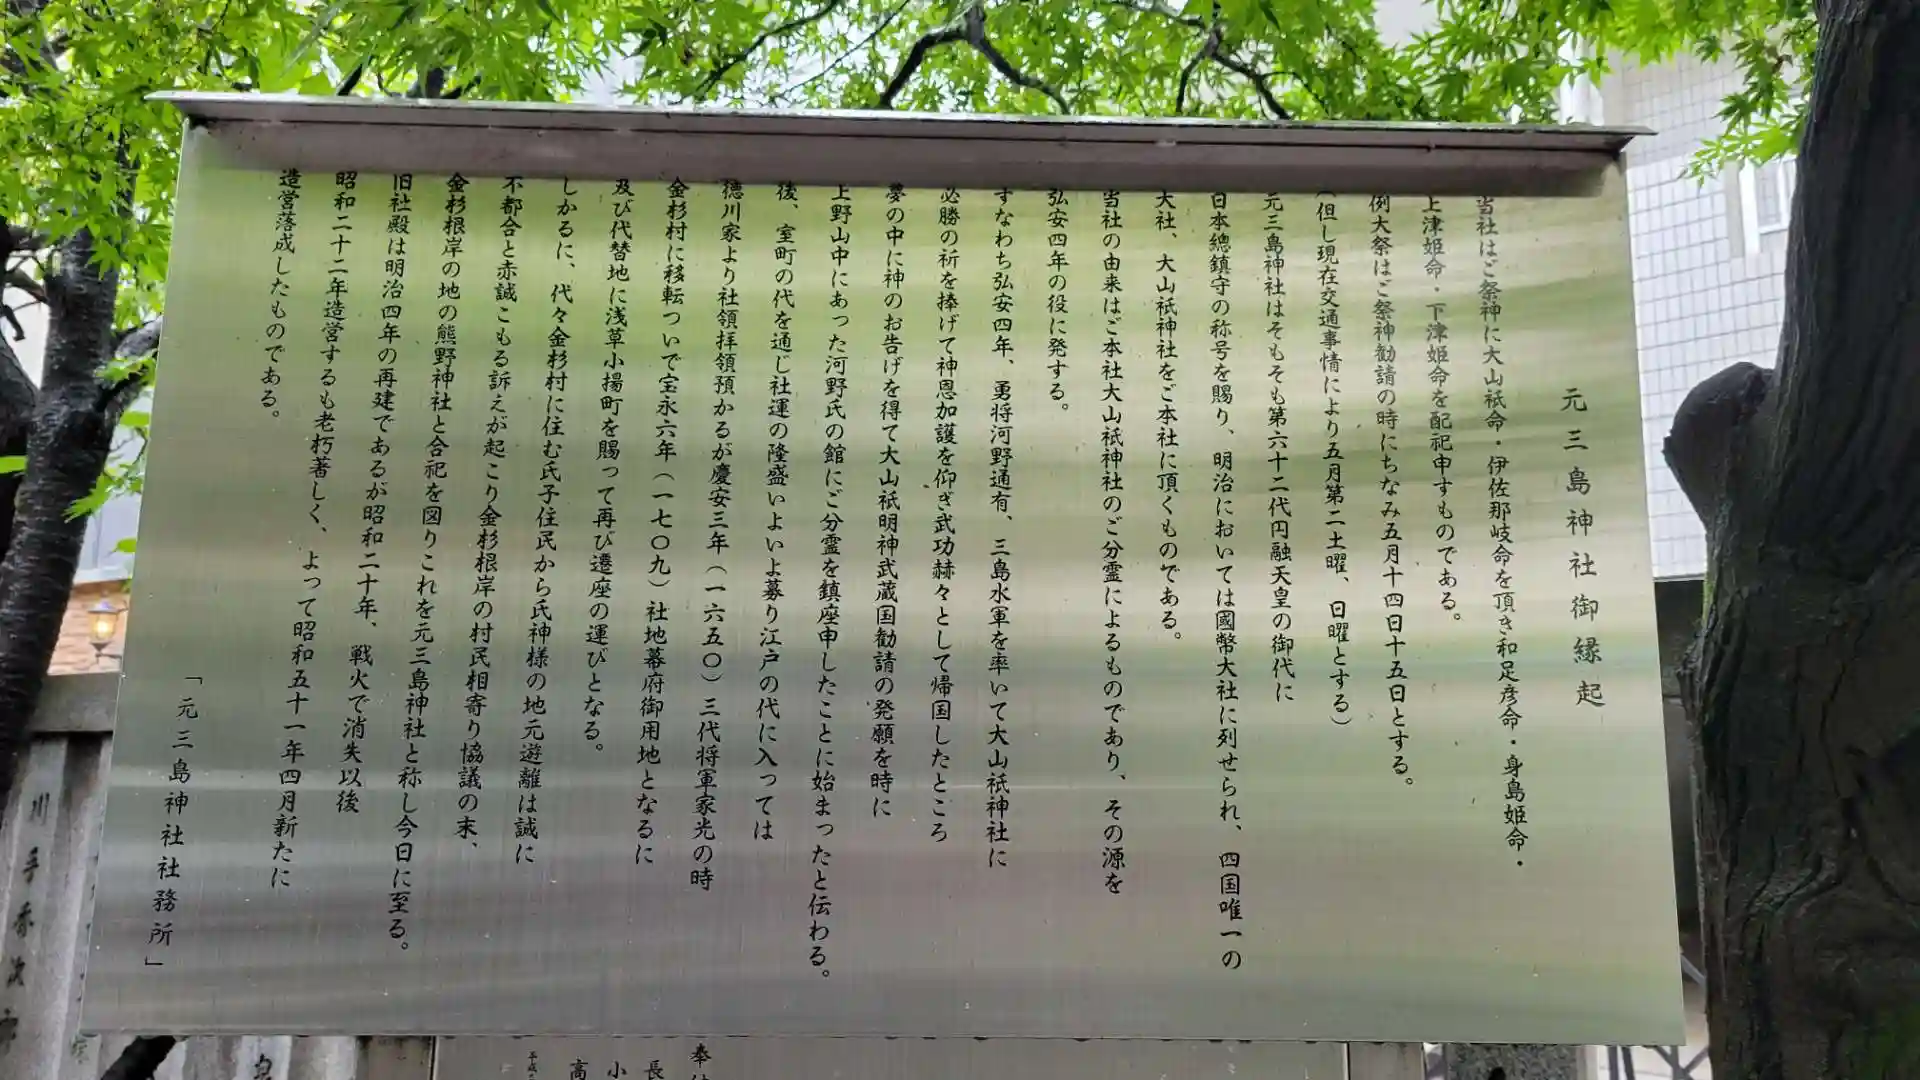 元三島神社御縁起
当社はご祭神に大山祇命・伊佐那岐命を頂き和足彦命・身島姫命・
上津姫命・下津姫命を配祀申すものである。
例大祭はご祭神勧請の時にちなみ五月十四日十五日とする。
(但し現在交通事情により五月第二土曜、日曜とする)
元三島神社はそもそも第六十二代円融天皇の御代に
日本總鎮守の称号を賜り、明治においては國幣大社に列せられ、四国唯一の
大社、大山祇神社をご本社に頂くものである。
当社の由来はご本社大山祇神社のご分霊によるものであり、その源を
弘安四年の役に発する。
すなわち弘安四年、勇将河野通有、三島水軍を率いて大山祇神社に
必勝の祈を捧げて神恩加護を仰ぎ武功赫々として帰国したところ
夢の中に神のお告げを得て大山祇明神武蔵国勧請の発願を時に
上野山中にあった河野氏の館にご分霊を鎮座申したことに始まったと伝わる。
後、室町の代を通じ社運の隆盛いよいよ募り江戸の代に入っては
徳川家より社領拝領預かるが慶安三年(一六五〇)三代将軍家光の時
金杉村に移転ついで宝永六年(一七〇九)社地幕府御用地となるに
及び代替地に浅草小揚町を賜って再び遷座の運びとなる。
しかるに、代々金杉村に住む氏子住民から氏神様の地元遊離は誠に
不都合と赤誠こもる訴えが起こり金杉根岸の村民相寄り協議の末、
金杉根岸の地の熊野神社と合祀を図りこれを元三島神社と称し今日に至る。
旧社殿は明治四年の再建であるが昭和二十年、戦火で消失以後
昭和二十二年造営するも老朽著しく、よって昭和五十一年四月新たに
造営落成したものである。
「元三島神社社務所」
奉
長
小
高
平成
川手
次